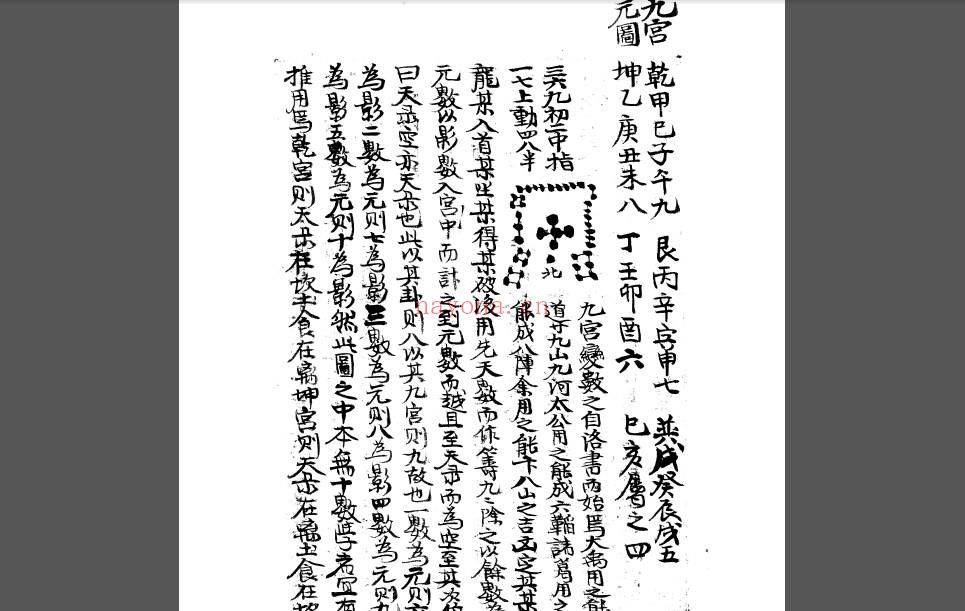 九宮
元圖
乾甲己子午九 艮丙辛寅申七 戊癸辰戌五
坤乙庚丑未八 丁壬卯酉六 巳亥屬之四
三六九初一中指
一七上動四八半
北
九宮變數之自洛書而始焉大禹用之能
道九山九河太公用之能成六韜諸葛用之
能成八陣余用之能卞八山之吉凶定其某
龍某入首某坐某得某破後用先天數而作等九九除之以餘數為
元數以影數入宮中而計之到元數而越且至天彔而為空至其次
曰天彔空亦天彔也此以其卦則八以其九宮則九故也一數為元則六
為影二數為元則七為影三數為元則八為影四數為元則九
為影五數為元則十為影然此圖之中本無十數學者宜有
推用焉乾宮則天彔在坎土食在离坤宮則天彔在离土食在坎
nayona.cn